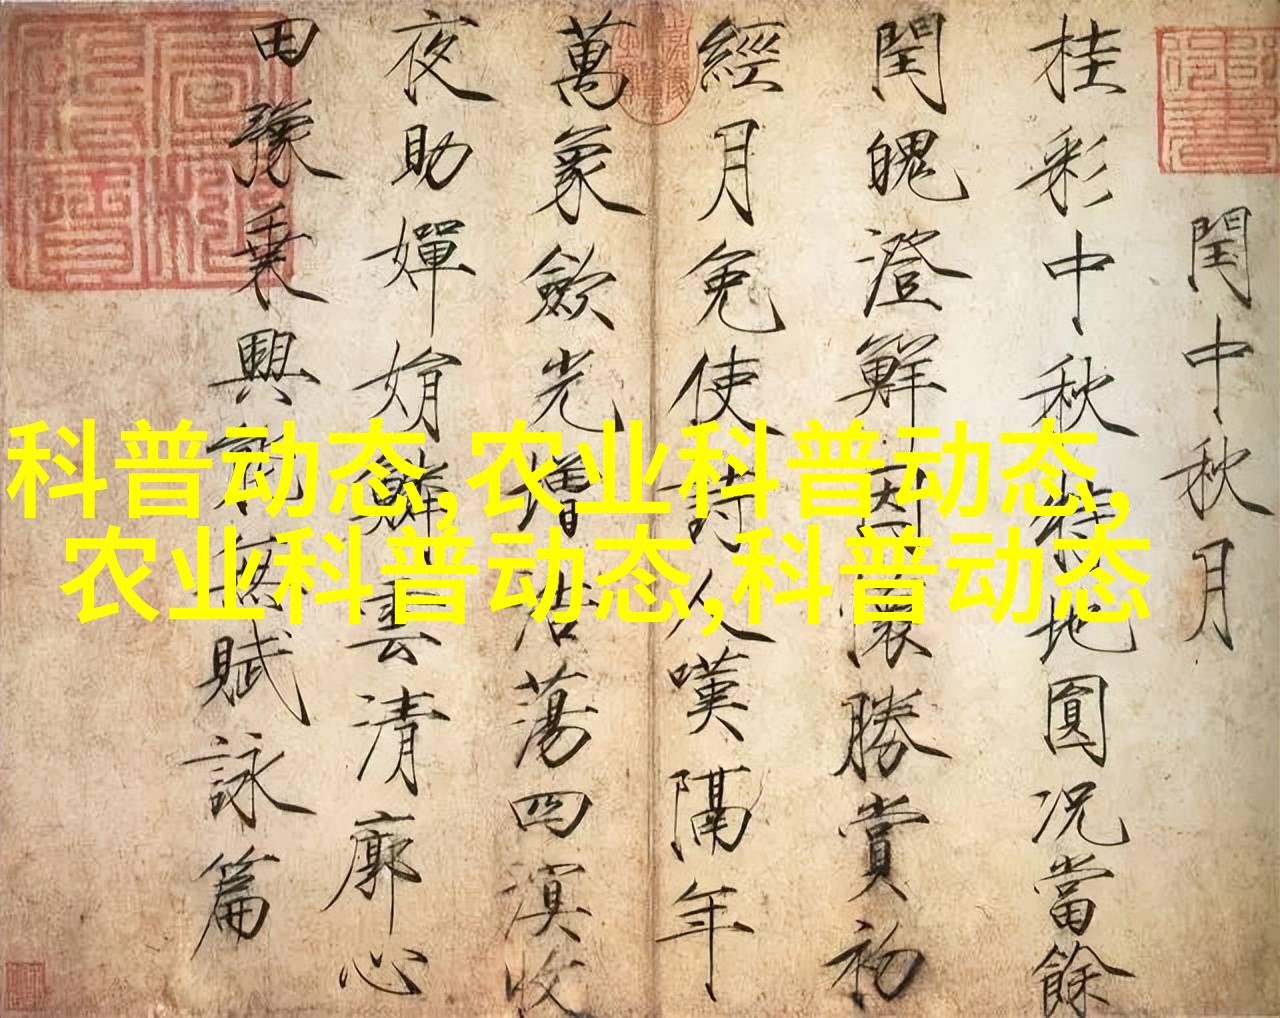 閏中秋月
桂彩中秋特地圓况當餘
閏魄澄鮮因懷勝賞初
經月免使詩人嘆隔年
萬象歛光增浩蕩四溟收
夜助嬋娟鱗雲清廓心
田豫乘興能無賦詠篇
科普动态,农业科普动态,
农业科普动态,科普动态